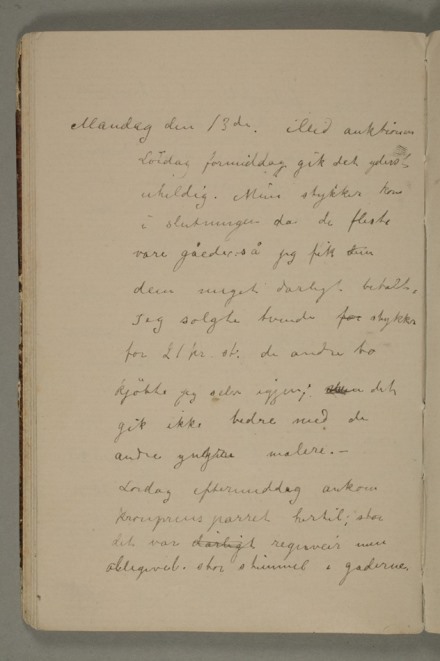 Mandag den 13de. Med auktionen
Lördag formiddag gik det yderst
uheldig. Mine stykker kom
i slutningen da de fleste
vare gåede, så jeg fik
dem meget dårligt betalt.
Jeg solgte tvende for stykker
for 21 kr. st. de andre to
kjöbte jeg selv igjen; det
gik ikke bedre med de
andre yngre malere. –
Lördag eftermiddag ankom
kronprins parret hertil;
det var dårligt regnveir men
alligevel stor stimmel i gaderne